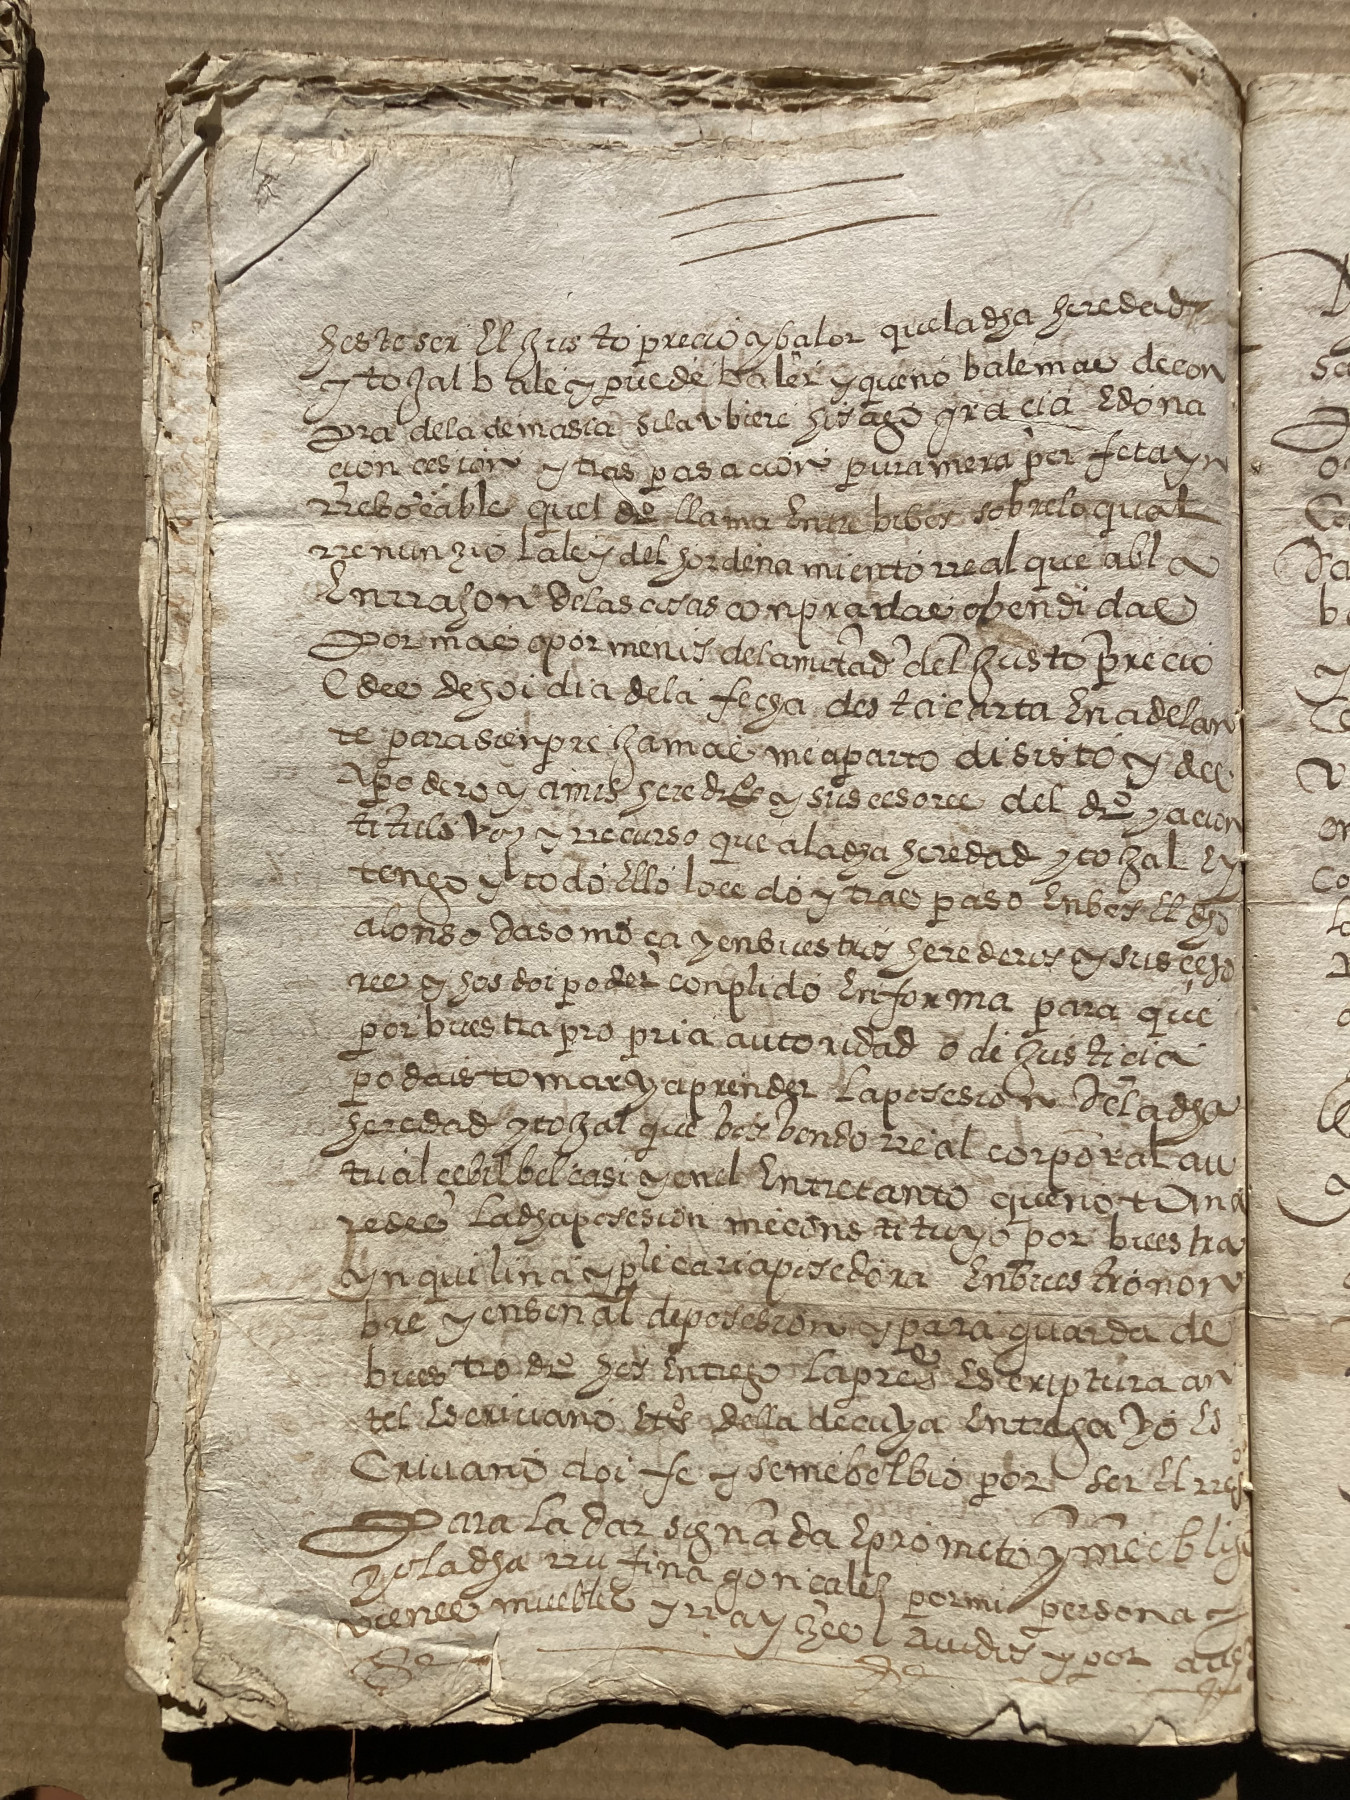 heste ser El husto precio y balor que la dha heredad
y tohal bale y puede baler y que no bale mas de con
pra dela demasia si la ubiere hos ago gracia Edona
cion cesion y traspasacion pura mera perfeta yn
rrebocable quel dro llama Entre bibos sobre lo qual
rrenunzio la ley del hordenamiento rreal que abla
En rrazon delas cosas conpradas o bendidas
por mas o por menos dela mitad del husto precio
E des de hoi dia dela fecha desta carta En adelan
te para sienpre hamas me aparto disisto y des
apodero y a mis heredros y suscesores del dro y acion
titulo voz y rrecurso que a la dha heredad y tohal Ey
tengo y todo Ello loce do y tras paso En bos El dho
alonso dasomoça y en buestros herederos y suscesso
res y hos doi poder conplido En forma para que
por buestra propria autoridad o de husticia
podais tomar y aprender la posesion Dela dha
heredad y tohal que bos bendo rreal corporal au
tual cebil bel casi y en el Entretanto que no toma
redes la dha posesion me constituyo por buestra
ynquilina y plicaria posedora En buestro non
bre y en senal de posesion y para guarda de
buestro dro hos Entrego la preste Escriptura an
tel Escrivano Etos della de cuya Entrega yo Es
Crivano doi fe y se me bolbio por ser El rrexo
Para la dar signada E prometo y me obligo
yo la dha rrufina gonçales por mi persona y
vienes muebles y rrayzes avidos y por aver